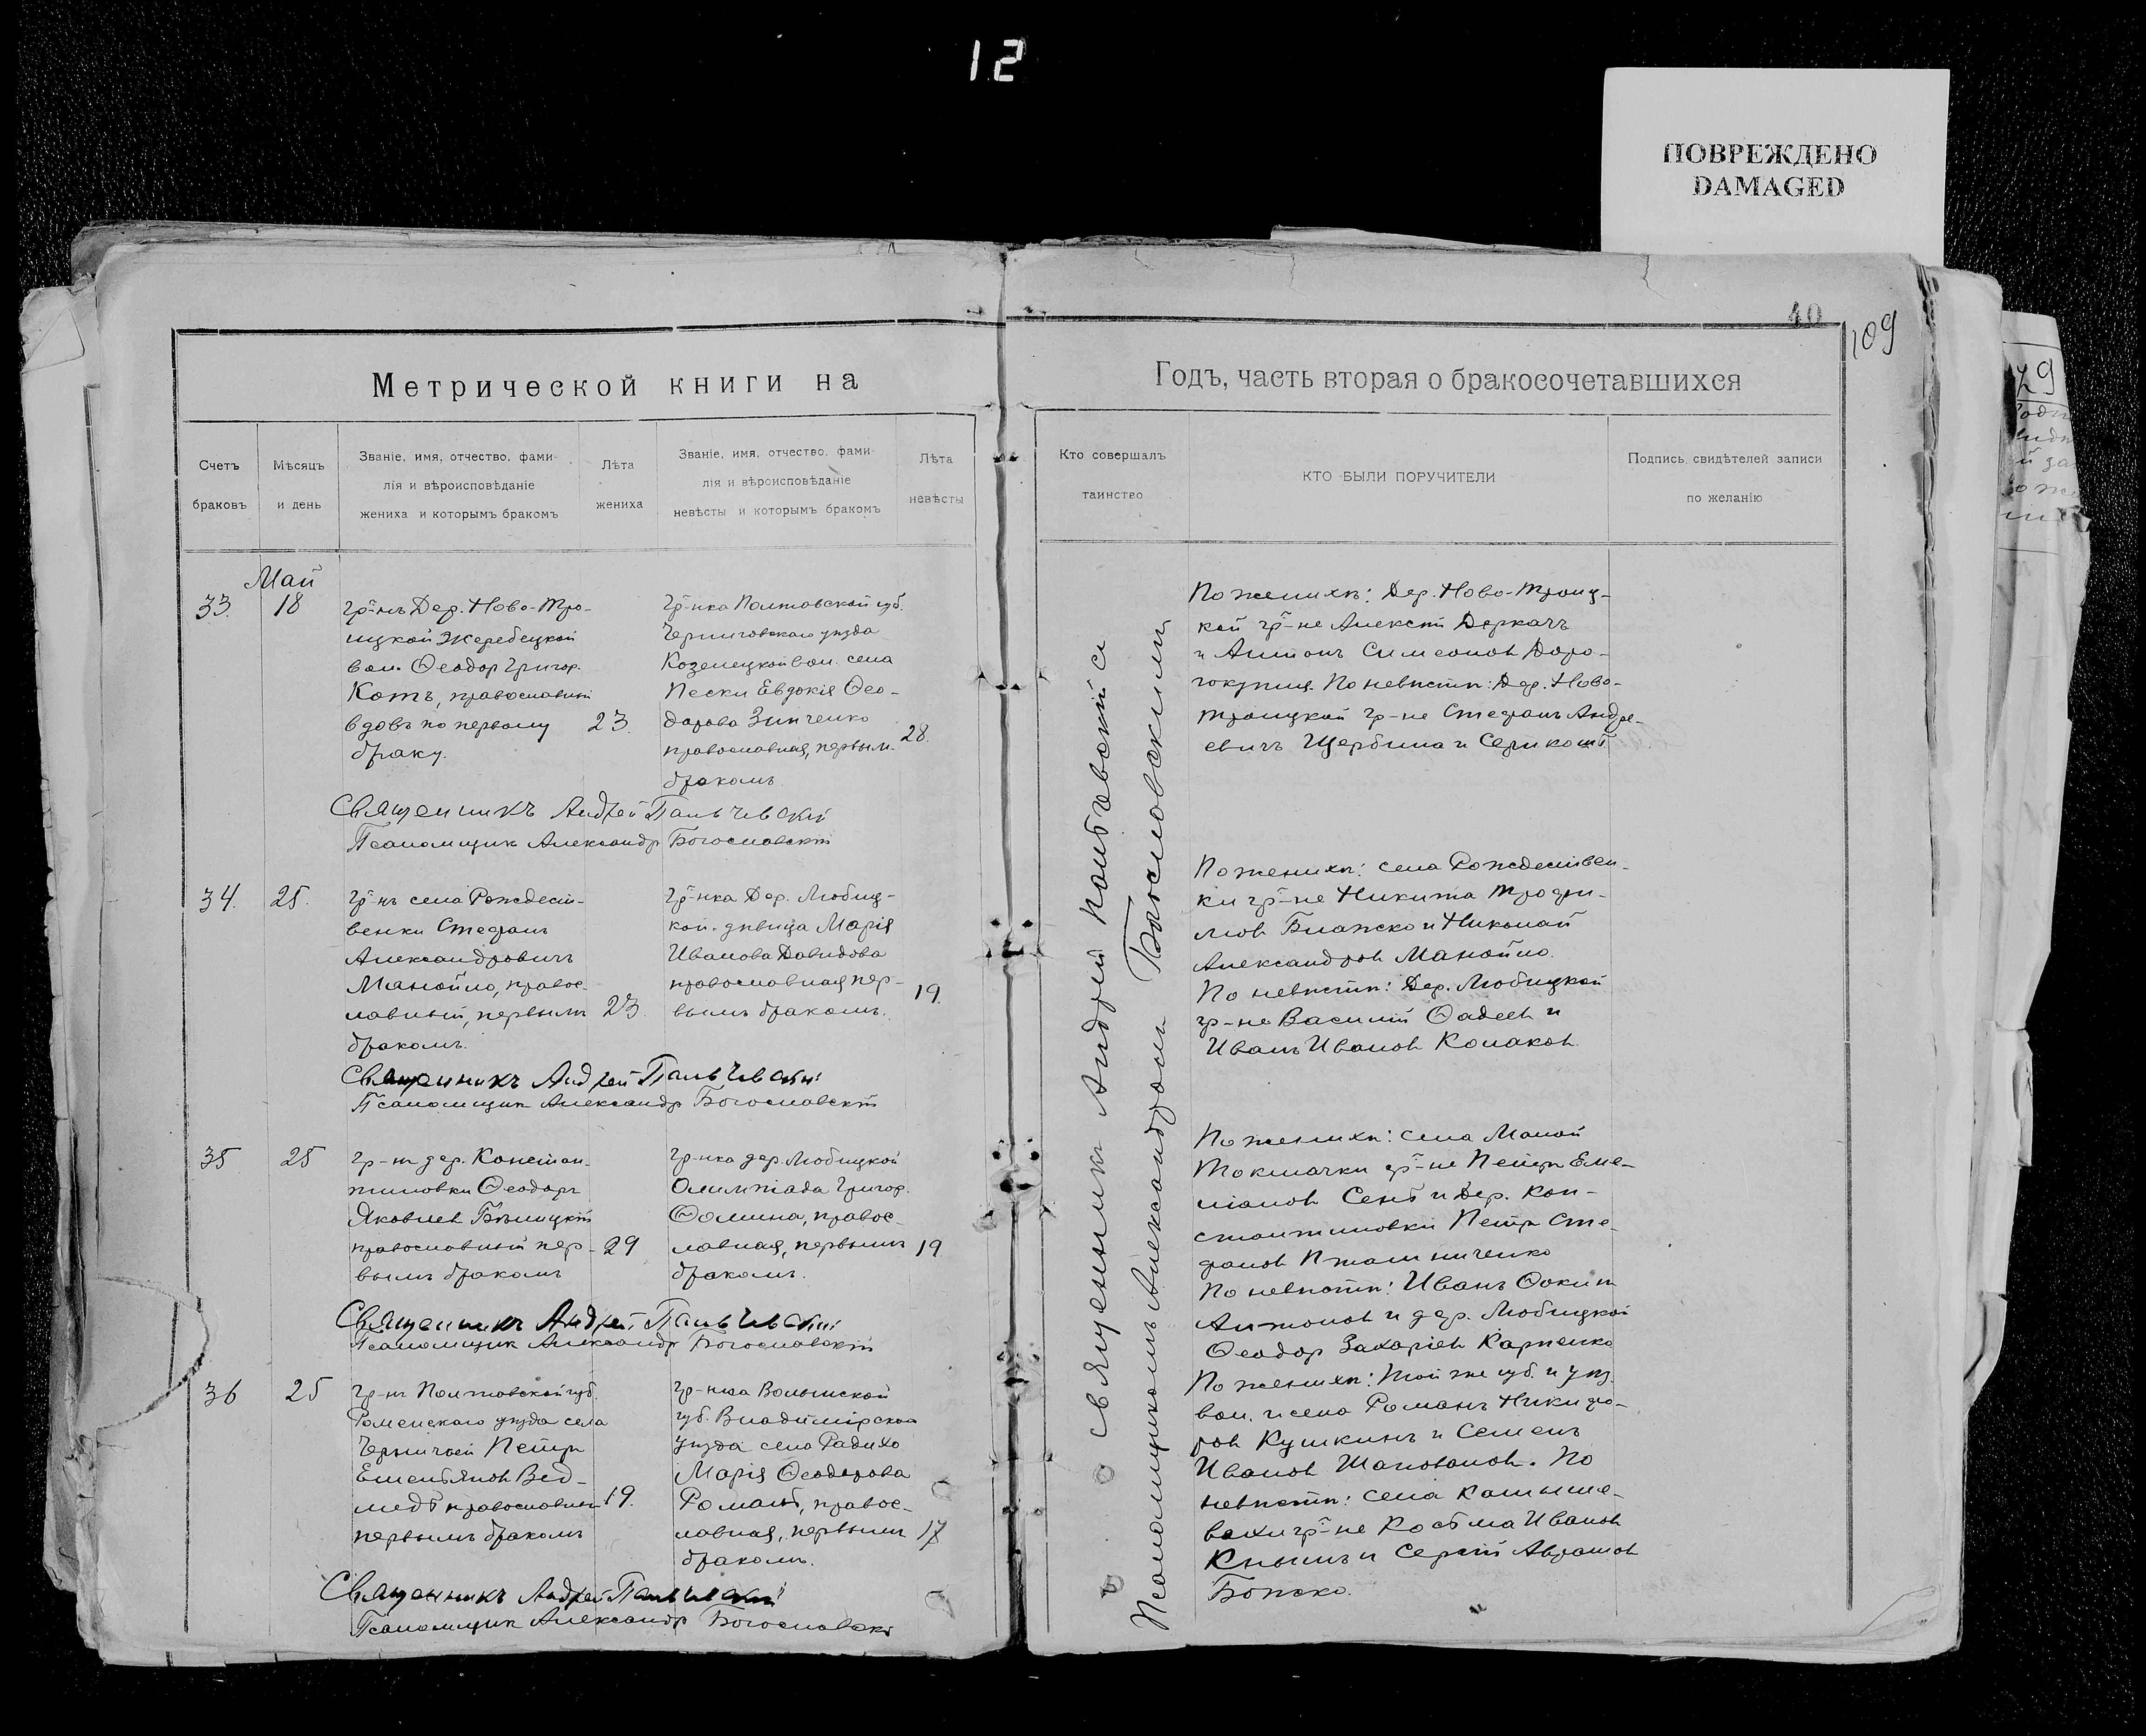 12
ПОВРЕЖДЕНО
DAMAGED
40
109
Метрической книги на
Годъ, часть вторая о бракосочетавшихся
Счетъ
браковъ
Мѣсяцъ
и день
Званіе, имя, отчество, фами-
лія и вѣроисповѣданіе
жениха и которымъ бракомъ
Лѣта
жениха
Званіе, имя, отчество, фами-
лія и вѣроисповѣданіе
невѣсты и которымъ бракомъ
Лѣта
невѣсты
Кто совершалъ
таинство
КТО БЫЛИ ПОРУЧИТЕЛИ
Подпись свидѣтелей записи
по желанію
Май
33.
18
гр-нъ Дер. Ново-Тро-
ицкой Жеребецкой
вол. Ѳеодор Григор.
Котъ, православный
вдовъ по первому
браку.
23.
Гр-нка Полтавской губ.
Черниговскаго уѣзда
Козелецкой вол. села
Пески Евдокія Ѳео-
дорова Зинченко
православная, первым
бракомъ.
28.
По женихѣ: Дер. Ново-Троиц-
кой гр-не Алексѣй Деркачъ
и Антонъ Симеонов Доро-
гокупля. По невѣстѣ: Дер. Ново-
троицкой гр-не Стефанъ Андре-
евичъ Щербина и
Священникъ Андрей
Псаломщикъ Александр Богословскій
34.
25.
Гр-нъ села Рождест-
венки Стефанъ
Александровичъ
Манойло, правос-
лавный, первымъ
бракомъ.
23.
Гр-нка Дер. Любиц-
кой. дѣвица Марія
Иванова Давидова
православная пер-
вымъ бракомъ.
19.
По женихѣ: села Рождествен-
ки гр-не Никита Трофи-
мов Блажко и Николай
Александров Манойло.
По невѣстѣ: Дер. Любицкой
гр-не Василій Ѳадеев и
Иванъ Иванов Колаков
Священникъ Андрей
Псаломщикъ Александр Богословскій
35
25
Гр-нъ дер. Констан-
тиновки Ѳеодоръ
Яковлев Бѣлицкій
православный пер-
вымъ бракомъ
29
Гр-нка дер. Любицкой
Олимпіада Григор.
Ѳомина, правос-
лавная, первымъ
бракомъ.
19
По женихѣ: села Малой
Токмачки гр-не Петръ Еме-
ліанов Сенъ и Дер. Кон-
стантиновки Петръ Сте-
фанов
По невѣстѣ: Иванъ
Антонов и дер. Любицкой
Ѳеодор Захаріев Карпенко
Священникъ Андрей
Псаломщикъ Александр Богословскій
36
25
Гр-нъ Полтавской губ.
Роменскаго уѣзда села
Петръ
Емельянов Вед-
медь православный
первымъ бракомъ
19.
Гр-нка Волынской
губ. Владимірскаго
уѣзда села Радихо
Марія Ѳеодорова
Романъ, правос-
лавная, первымъ
бракомъ.
17
По женихѣ: той же губ. и уѣз.
вол. и села Романъ Никифо-
ров Кушкинъ и Семенъ
Иванов Шаповалов. По
невѣстѣ: села Камыше-
вахи гр-не Косьма Иванов
Кнышъ и Сергѣй Абрамов
Божко.
Священникъ Андрей
Псаломщикъ Александр Богословскій
Священникъ Андрей
Псаломщикомъ Александромъ Богословскимъ